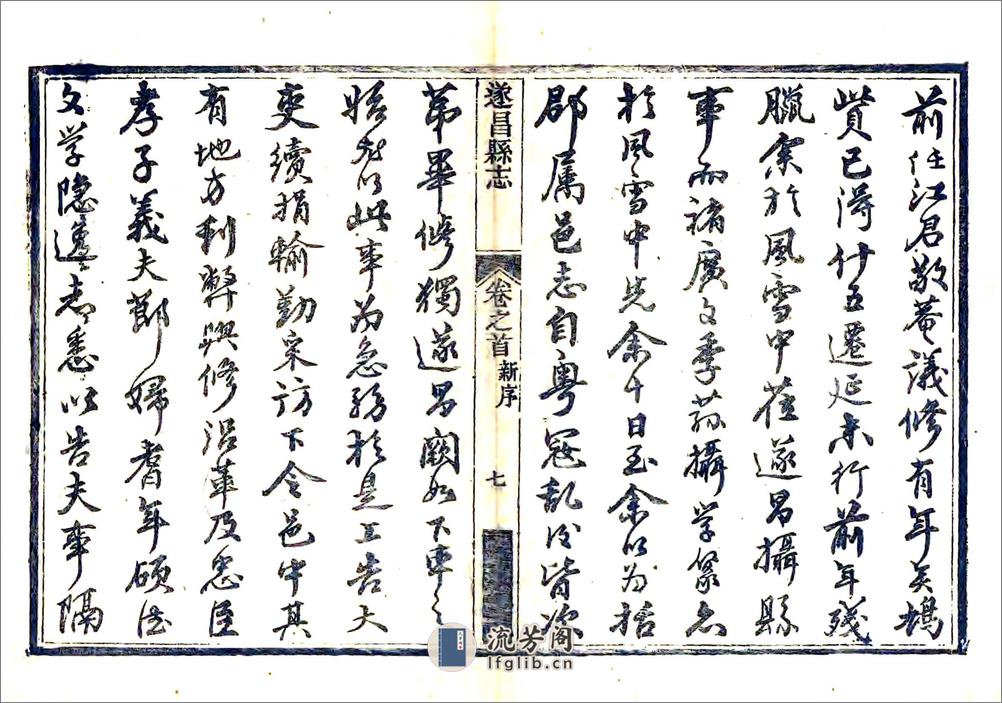 前任江君敬菴議修有年矣鳩
貲已得什五遷延未行前年殘
臘余於風雪中蒞遂昌攝縣
事而諸廣文季蓀攝學篆亦
於風雪中先余十日至余以為括
郡属邑志自粤寇乱後皆次
遂昌縣志
卷之首 新序
七
苐畢修獨遂昌闕如下車之
始即以此事為急務於是正告大
吏續捐輸勤采訪下令邑中其
有地方利弊興修沿革及忠臣
孝子義夫節婦耆年碩德
文学隐逸者悉以告夫事隔
流芳阁
lfglib.cn